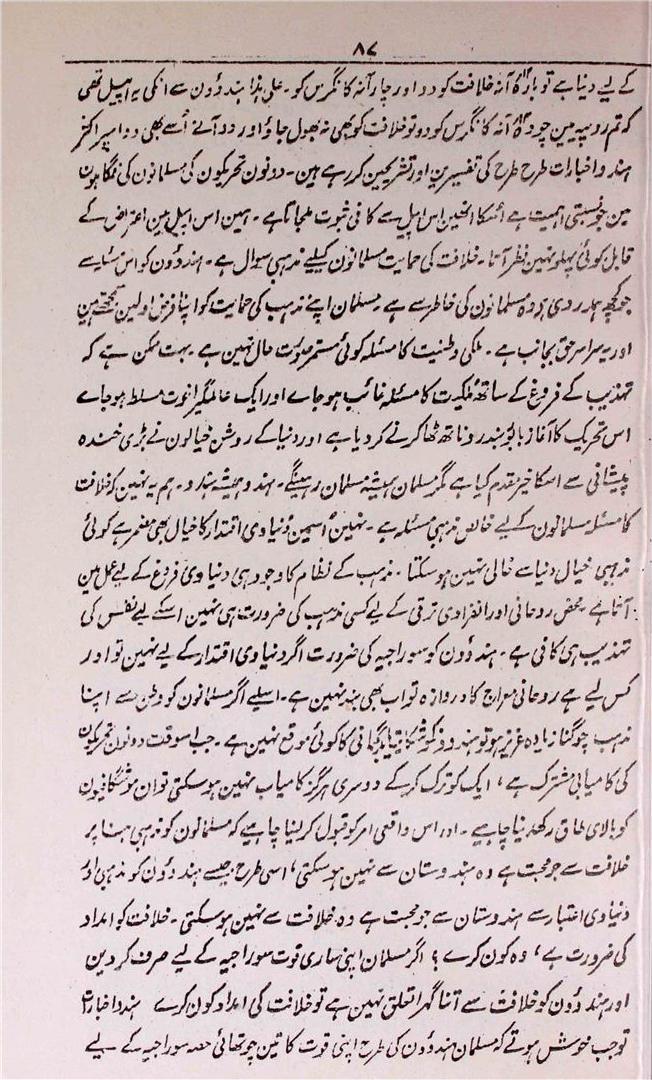 ۸۷
کے لیے دینا ہے تو بارہ آنہ خلافت کو دو اور چار آنہ کانگرس کو۔ علیٰ ہذا ہندوُون سے انکی یہ اپیل تھی
کہ تم روپیہ مین چودہ آنہ کانگرس کو دو تو خلافت کو بھی نہ بھول جاوُ اور دو آنے اُسے بھی دو اسپر اکثر
ہندو اخبارات طرح طرح کی تفسیرین اور تشریحین کر رہے ہین۔ دونون تحریکون کی مسلمانون کی نگاہون
مین جو نسبتی اہمیت ہے اُسکا انھین اس اپیل سے کافی ثبوت ملجاتا ہے۔ ہمین اس اپیل مین اعتراض کے
قابل کوئی پہلو نہین نظر آتا۔ خلافت کی حمایت مسلمانون کیلیے مذہبی سوال ہے۔ ہندوُون کو اس مسئلہ سے
جو کچھ ہمدردی ہو وہ مسلمانون کی خاطر سے ہے۔ مسلمان اپنے مذہب کی حمایت کو اپنا فرض اولین سمجھتے ہین
اور یہ سراسر حق بجانب ہے۔ ملکی وطنیت کا مسئلہ کوئی مستمر صورت حال نہین ہے۔ بہت ممکن ہے کہ
تہذیب کے فروغ کے ساتھ مُلکیت کا مسئلہ غائب ہو جاے اور ایک عالمگیر اخوت مسلط ہو جاے
اس تحریک کا آغاز بابو ربندرو ناتھ ٹھاکر نے کر دیا ہے اور دنیا کے روشن خیالون نے بڑی خندہ
پیشانی سے اسکا خیر مقدم کیا ہے مگر مسلمان ہمیشہ مسلمان رہینگے۔ ہندو ہمیشہ ہندو۔ ہم یہ نہین کہ خلافت
کا مسئلہ مسلمانون کے لیے خالص مذہبی مسئلہ ہے۔ نہین اُسمین دُنیاوی اقتدار کا خیال بھی مضمر ہے کوئی
مذہبی خیال دنیا سے خالی نہین ہو سکتا۔ مذہب کے نظام کا وجود ہی دنیاوی فروغ کے لیے عمل مین
آتا ہے۔ محض روحانی اور انفرادی ترقی کے لیے کسی مذہب کی ضرورت ہی نہین اسکے لیے نفس کی
تہذیب ہی کافی ہے۔ ہندوُون کو سوراجیہ کی ضرورت اگر دنیاوی اقتدار کے لیے نہین تو اور
کس لیے ہے روحانی معراج کا دروازہ تو اب بھی بند نہین ہے۔ اسلیے اگر مسلمانون کو وطن سے اپنا
مذہب چوگنا زیادہ عزیز ہو تو ہندووُن کو شکایت یا بدگمانی کا کوئی موقع نہین ہے۔ جب اسوقت دونون تحریکون
کی کامیابی مشترک ہے، ایک کو ترک کر کے دوسری ہرگز کامیاب نہین ہو سکتی تو ان موشگافیون
کو بالاے طاق رکھدینا چاہیے۔ اور اس واقعی امر کو قبول کر لینا چاہیے کہ مسلمانون کو مذہبی بنا پر
خلافت سے جو محبت ہے وہ ہندوستان سے نہین ہو سکتی، اسی طرح جیسے ہندووُن کو مذہبی اور
دنیاوی اعتبار سے ہندوستان سے جو محبت ہے وہ خلافت سے نہین ہو سکتی۔ خلافت کو امداد
کی ضرورت ہے، وہ کون کرے؟ اگر مسلمان اپنی ساری قوت سوراجیہ کے لیے صرف کر دین
اور ہندووُن کو خلافت سے اتنا گہرا تعلق نہین ہے تو خلافت کی امداد کون کرے ہندو اخبارات
تو جب خوش ہوتے کہ مسلمان ہندووُن کی طرح اپنی قوت کا تین چوتھائی حصہ سوراجیہ کے لیے